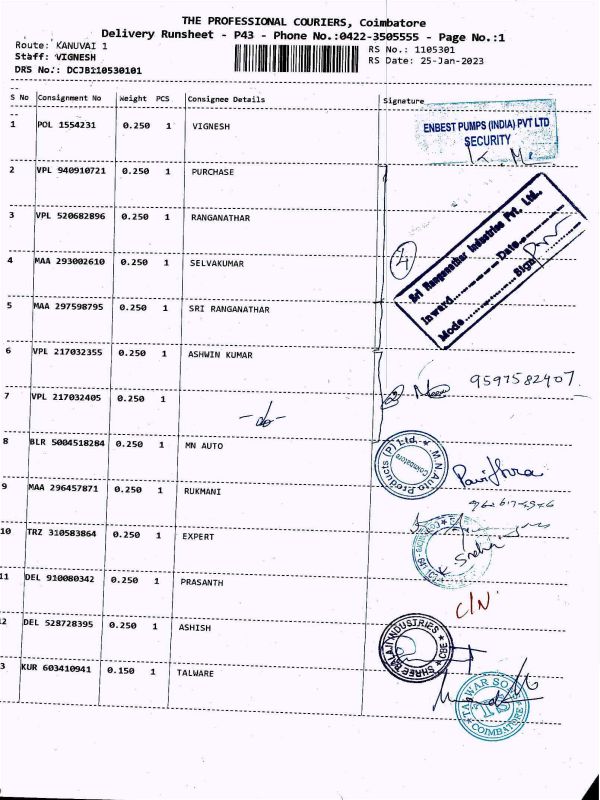 THE PROFESSIONAL COURIERS, Coimbatore
Delivery Runsheet - P43 - Phone No.:0422-3505555 - Page No.:1
Route: KANUVAI 1
RS No.: 1105301
Staff: VIGNESH
RS Date: 25-Jan-2023
DRS No.: DCJB110530101
S No Consignment No Weight PCS Consignee Details Signature
1 POL 1554231 0.250 1 VIGNESH
ENBEST PUMPS (INDIA) PVT LTD
SECURITY
2 VPL 940910721 0.250 1 PURCHASE
3 VPL 520682896 0.250 1 RANGANATHAR
Sri Ranganathar Industries Pvt. Ltd.,
Inward........Date........
Mode........Sign
4 MAA 293002610 0.250 1 SELVAKUMAR
4
5 MAA 297598795 0.250 1 SRI RANGANATHAR
6 VPL 217032355 0.250 1 ASHWIN KUMAR
9597582407
7 VPL 217032405 0.250 1 -do-
8 BLR 5004518284 0.250 1 MN AUTO
M.N Auto Products (P) Ltd.
Coimbatore
Pavithra
9 MAA 296457871 0.250 1 RUKMANI
10 TRZ 310583864 0.250 1 EXPERT
11 DEL 910080342 0.250 1 PRASANTH
C/N
2 DEL 528728395 0.250 1 ASHISH
SHREE BALAJI INDUSTRIES CBE
3 KUR 603410941 0.150 1 TALWARE
COIMBATORE